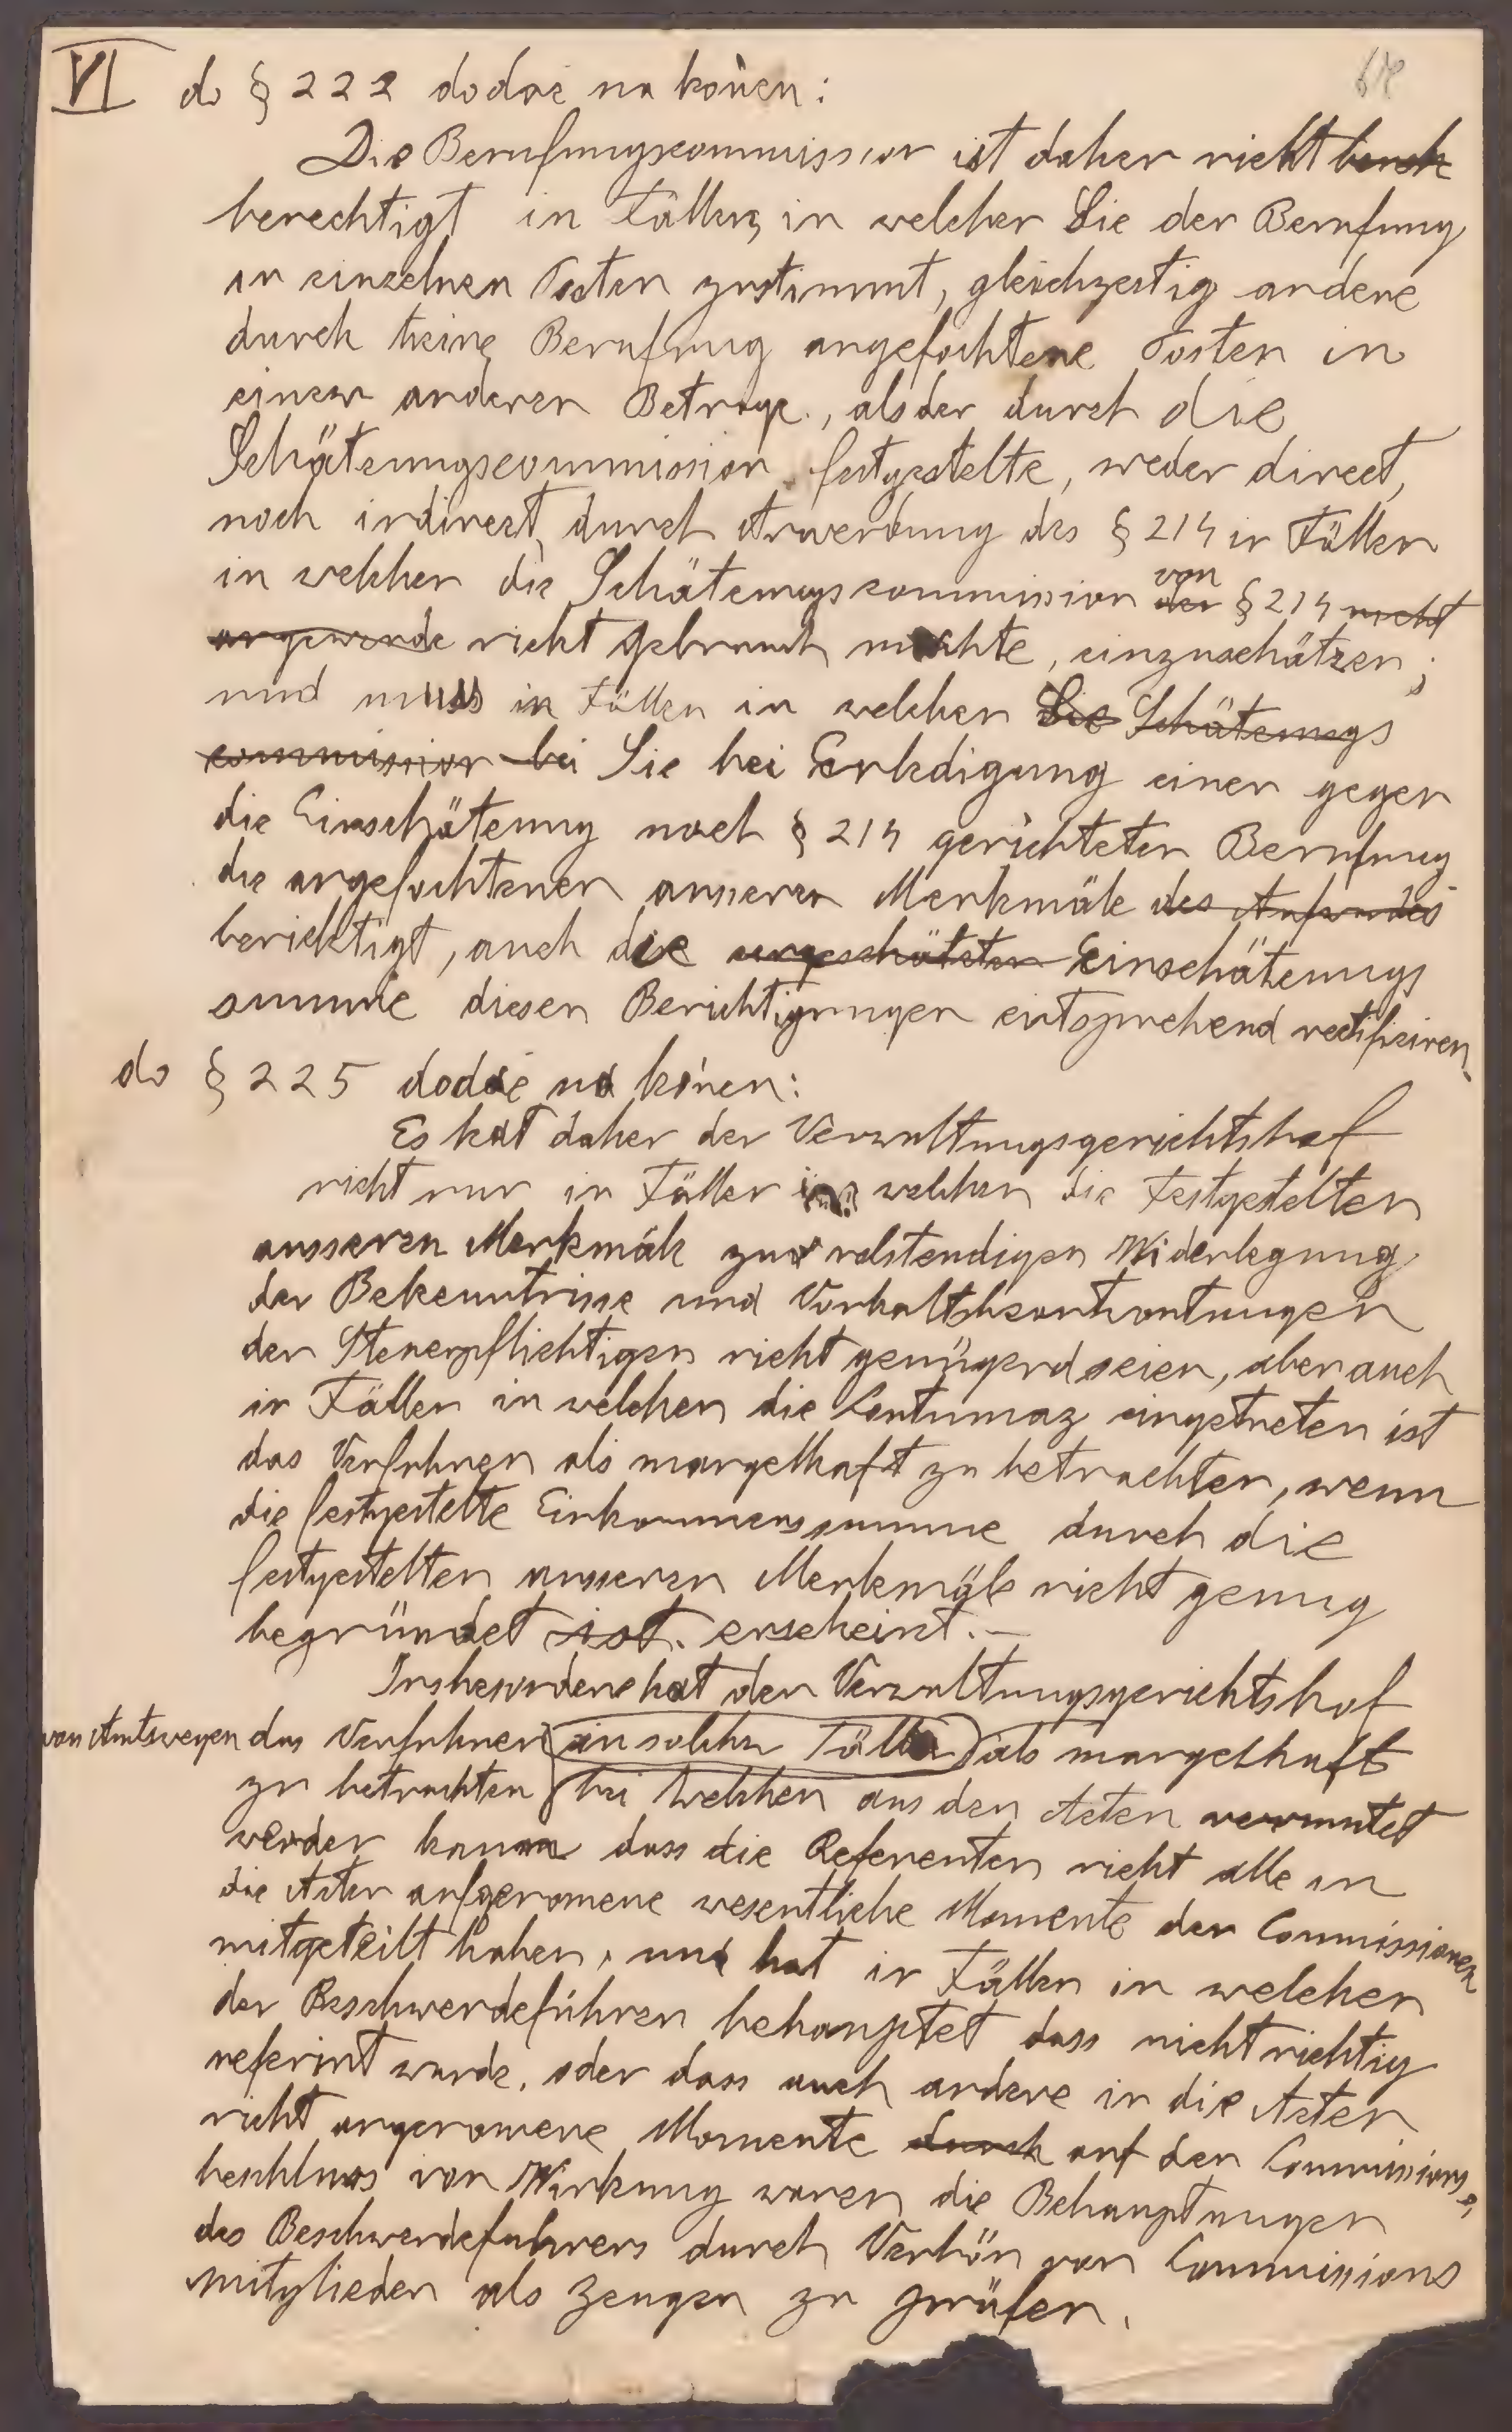 VI do § 222 dodać na końcu:
Die Berufungscommission ist daher nicht berech
berechtigt in Fällen, in welchen Sie der Berufung
in einzelnen Posten zustimmt, gleichzeitig andere
durch keine Berufung angefochtene Posten in
einem anderen Betrage, als der durch die
Schätzungscommission festgestelte, weder direct,
noch indirect, durch Anwendung des § 214 in Fällen
in welchen die Schätzungscommission der von § 214 nicht
angewende nicht gebrauch machte, einzuschätzen;
und muss in Fällen in welchen die Schätzungs
commission bei Sie bei Erledigung einer gegen
die Einschätzung nach § 214 gerichteten Berufung
die angefochtenen äusseren Merkmäle des Aufwandes
berichtigt, auch die eingeschätzten Einschätzungs
summe diesen Berichtigungen entsprechend rectifiziren.
do § 225 dodać na końcu:
Es hat daher der Verwaltungsgerichtshof
nicht nur in Fällen in welchen die Festgestelten
äusseren Merkmäle zur volstendigen Widerlegung
der Bekenntnisse und Vorhaltsbeantwortungen
der Steuerpflichtigen nicht genügend seien, aber auch
in Fällen in welchen die Contumaz eingetreten ist
das Verfahren als mangelhaft zu betrachten, wenn
die festgestelte Einkommenssumme durch die
festgestelten äusseren Merkmäle nicht genug
begründet ist. erscheint.-
Insbesondere hat der Verwaltungsgerichtshof
von Amtswegen das Verfahren in solchen Fällen als mangelhaft
zu betrachten bei welchen aus den Acten vermutet
werden kann dass die Referenten nicht alle in
die Acten aufgenomene wesentliche Momente der Commissionen
mitgeteilt haben, und hat in Fällen in welchen
der Beschwerdeführer behauptet dass nicht richtig
referirt wurde, oder dass auch andere in die Acten
nicht angenomene Momente durch auf den Commissions-
beschluss von Wirkung waren die Behauptungen
des Beschwerdeführers durch Verhör von Commissions
mitglieder als Zeugen zu prüfen.